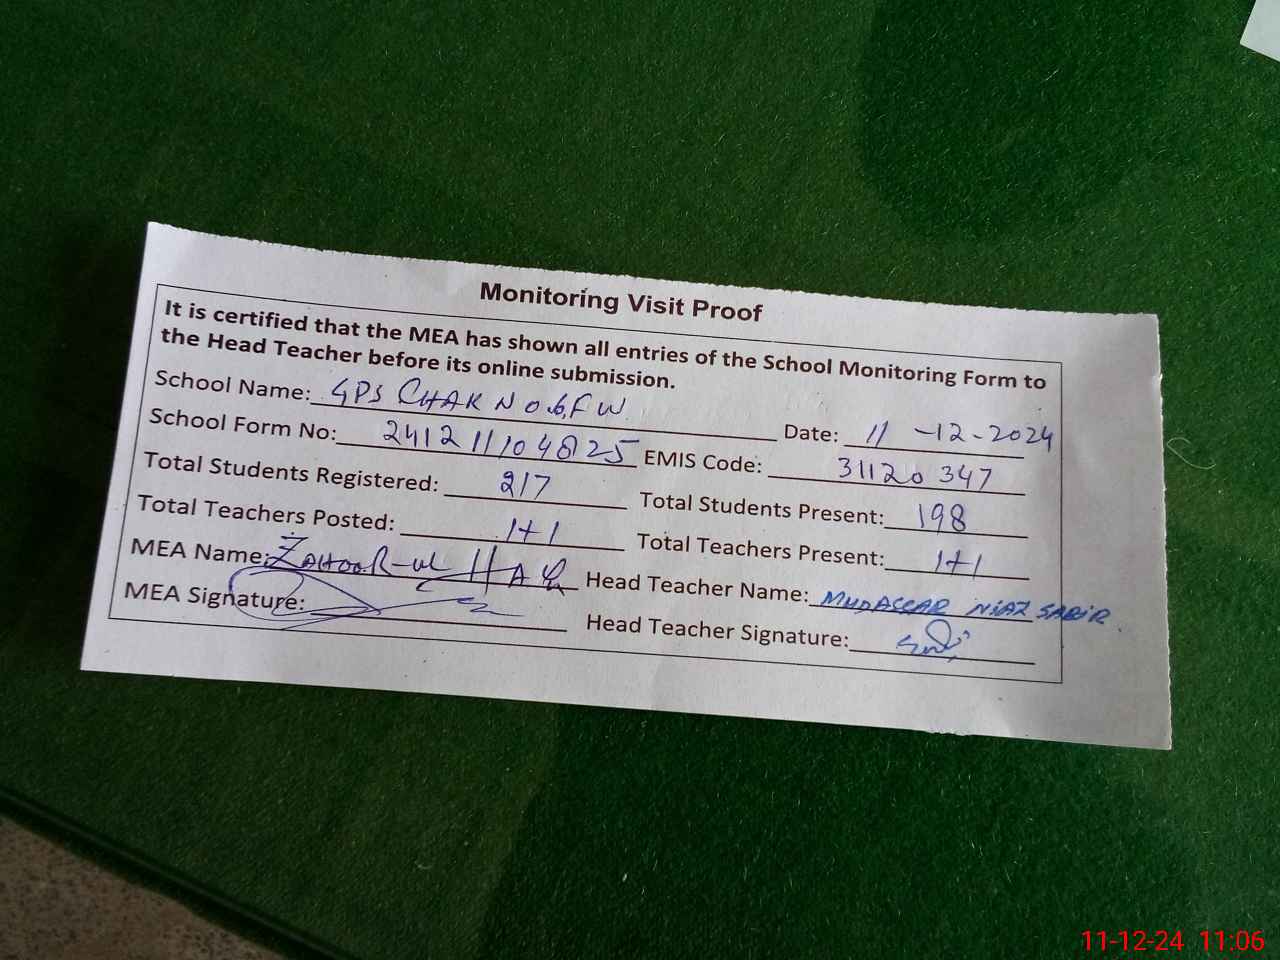 Monitoring Visit Proof
It is certified that the MEA has shown all entries of the School Monitoring Form to
the Head Teacher before its online submission.
School Name: GPS CHAK NO.6,FW. Date: 11-12-2024
School Form No: 2412111048125 EMIS Code: 31120347
Total Students Registered: 217 Total Students Present: 198
Total Teachers Posted: 1+1 Total Teachers Present: 1+1
MEA Name: ZAHOOR-ul HAQ Head Teacher Name: MUDASSAR NIAZ SABIR.
MEA Signature: Head Teacher Signature:
11-12-24 11:06